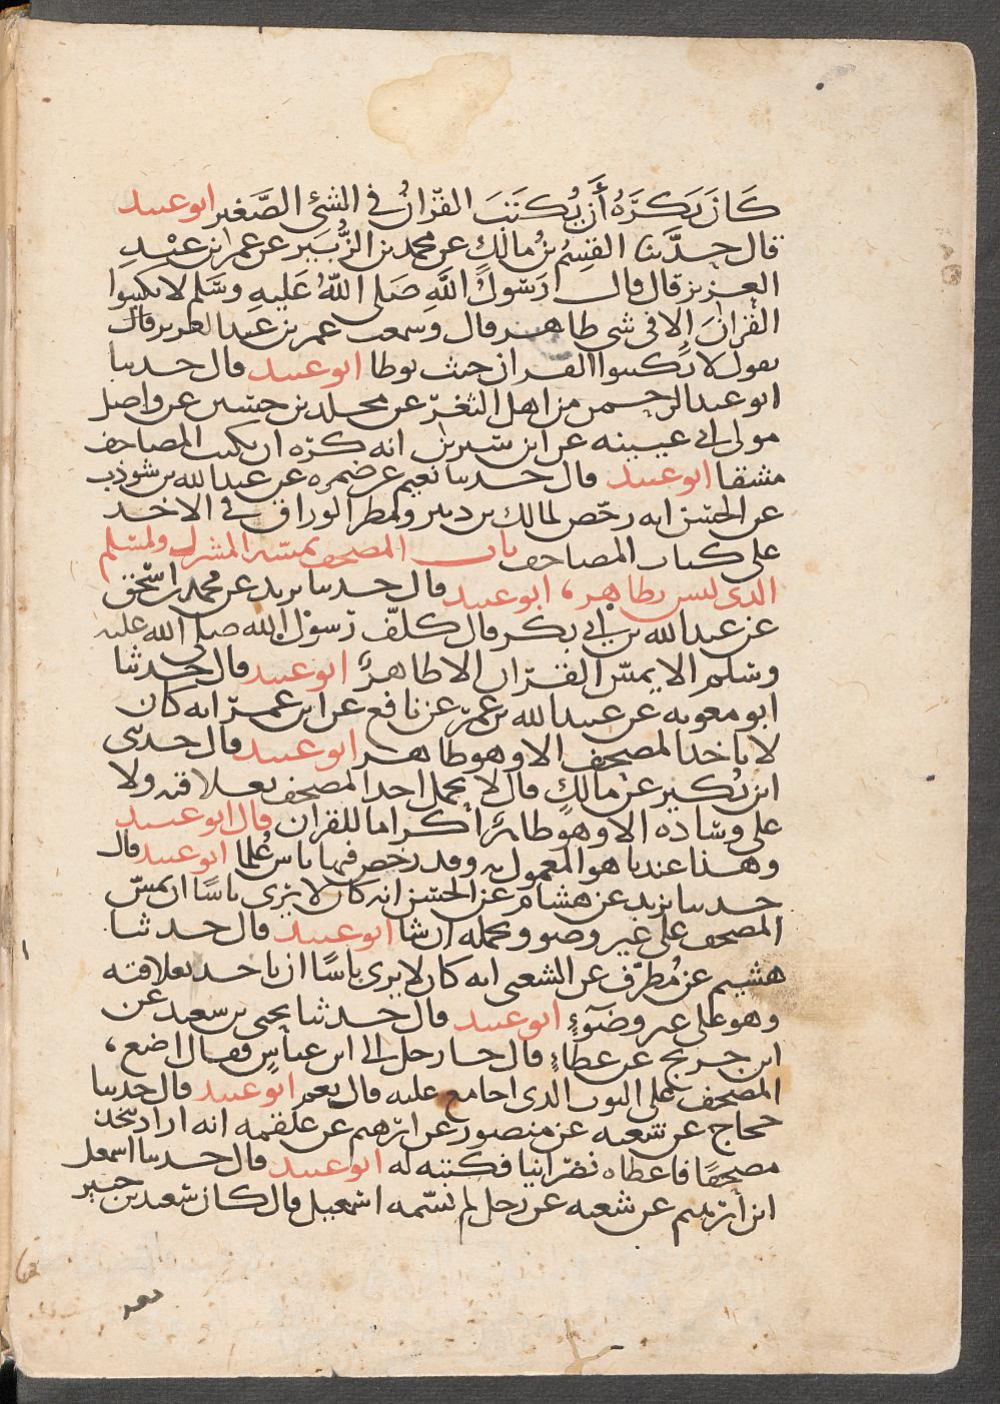 كَانَ يَكرَهُ أَن يُكتَبَ القُرانُ في الشئ الصَّغير ابو عبيد
قال حدَّثنا القسِمُ بنُ مالكٍ عن محمد بن الزُّبَير عن عمر ابن عبْدِ
العزيز قال قال رَسُولُ اللَّهِ صَلى اللَّهُ عَليهِ وسَلم لا تكتبوا
القُرانَ إلا في شي طاهر قال وسمعت عمر بن عبد العزيز قال
يقول لا تكتبوا القران حيث يوطا ابو عبيد قال حدثنا
ابو عبد الرحمن من اهل الثغر عن مخلد بن حسين عن واصل
مولى ابي عيينه عن ابن سيرين انه كره ان يكتب المصاحف
مشقا ابو عبيد قال حدثنا نعيم عن ضمره عن عبد الله بن شوذب
عن الحسن انه رخص لمالك بن دينر ومطر الوراق في الاخذ
على كتاب المصاحف باب المصحف يمسه المشرك والمسلم
الذي ليس بطاهر، ابو عبيد قال حدثنا يزيد عن محمد بن اسحق
عن عبد الله بن ابي بكر قال كلف رسول الله صلى الله عليه
وسلم الا يمس القران الا طاهرٌ ابو عبيد قال حدثنا
ابو معويه عن عبيد الله بن عمر عن نافع عن ابن عمر انه كان
لا ياخذ المصحف الا وهو طاهر ابو عبيد قال حدثني
ابن بُكير عن مالكٍ قال لا يحمل احد المصحف بعلاقته ولا
على وساده الا وهو طاهرٌ اكراما للقران قال ابو عبيد
وهذا عندنا هو المعمول به وقد رخص فيها ناس عُلما ابو عبيد قال
حدثنا يزيد عن هشام عن الحسن انه كان لا يرى باسًا ان يمس
المصحف على غير وضو ويحمله ان شا ابو عبيد قال حدثنا
هشيم عن مُطرّف عن الشعبي انه كان لا يرى باسًا ان ياخذ بعلاقته
وهو على غير وضوءٍ ابو عبيد قال حدثنا يحيى بن سعيد عن
ابن جريج عن عطاءٍ قال جا رجل الى ابن عباسٍ فقال اضع،
المصحف على الثوب الذي اجامع عليه قال نعم ابو عبيد قال حدثنا
حجاج عن شعبه عن منصور عن ابرهيم عن علقمه انه اراد يتخذ
مصحفًا فاعطاه نصرانيا فكتبه له ابو عبيد قال حدثنا اسمعيل
ابن ابرهيم عن شعبه عن رجل لم يسمه اسمعيل قال كان سعيد بن جبير